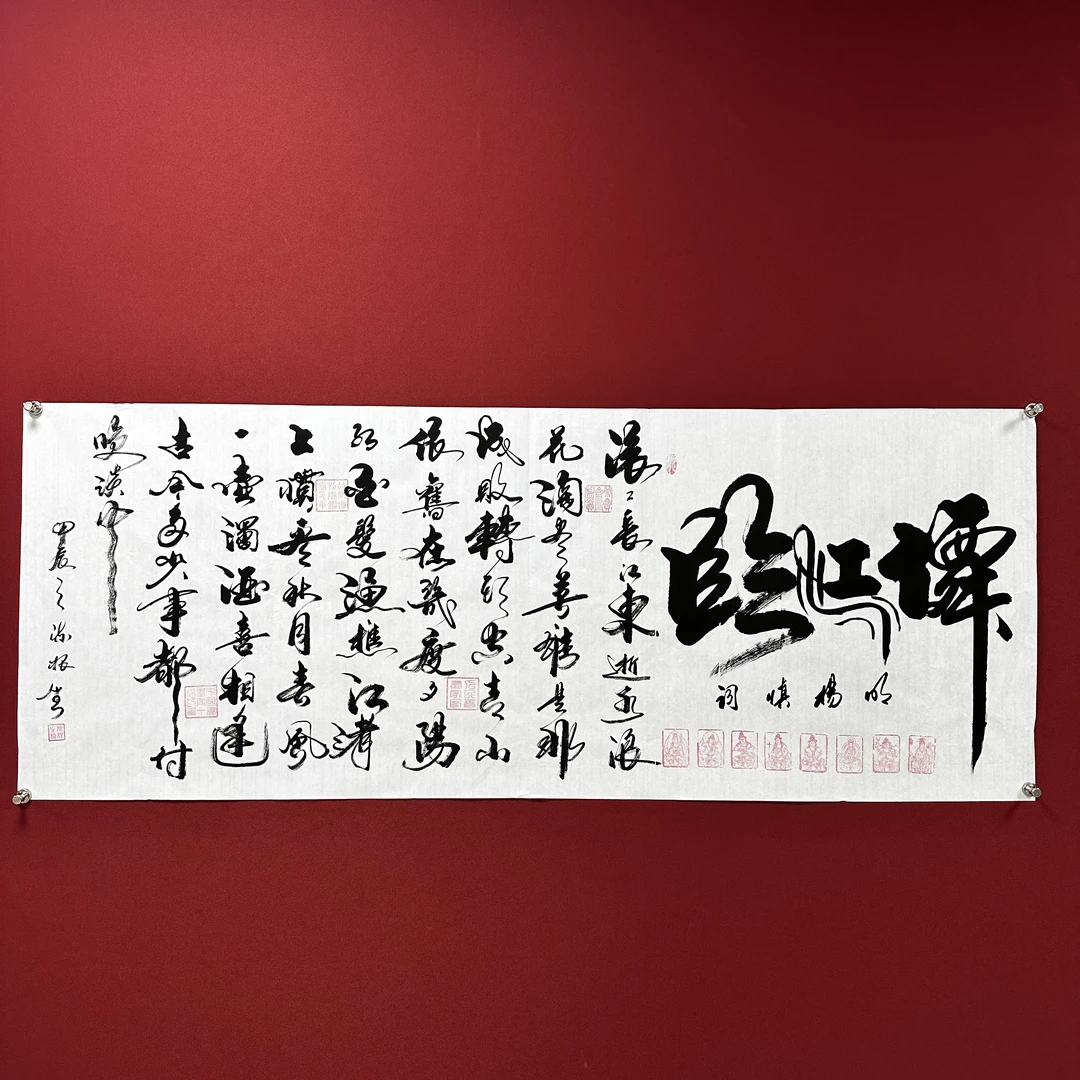 臨江
明楊慎詞
滚〻長江東逝水浪
花淘尽英雄是非
成敗轉頭空青山
依舊在幾度夕陽
紅白髮漁樵江渚
上慣看秋月春風
一壺濁酒喜相逢
古今多少事都付
笑談中
甲辰之